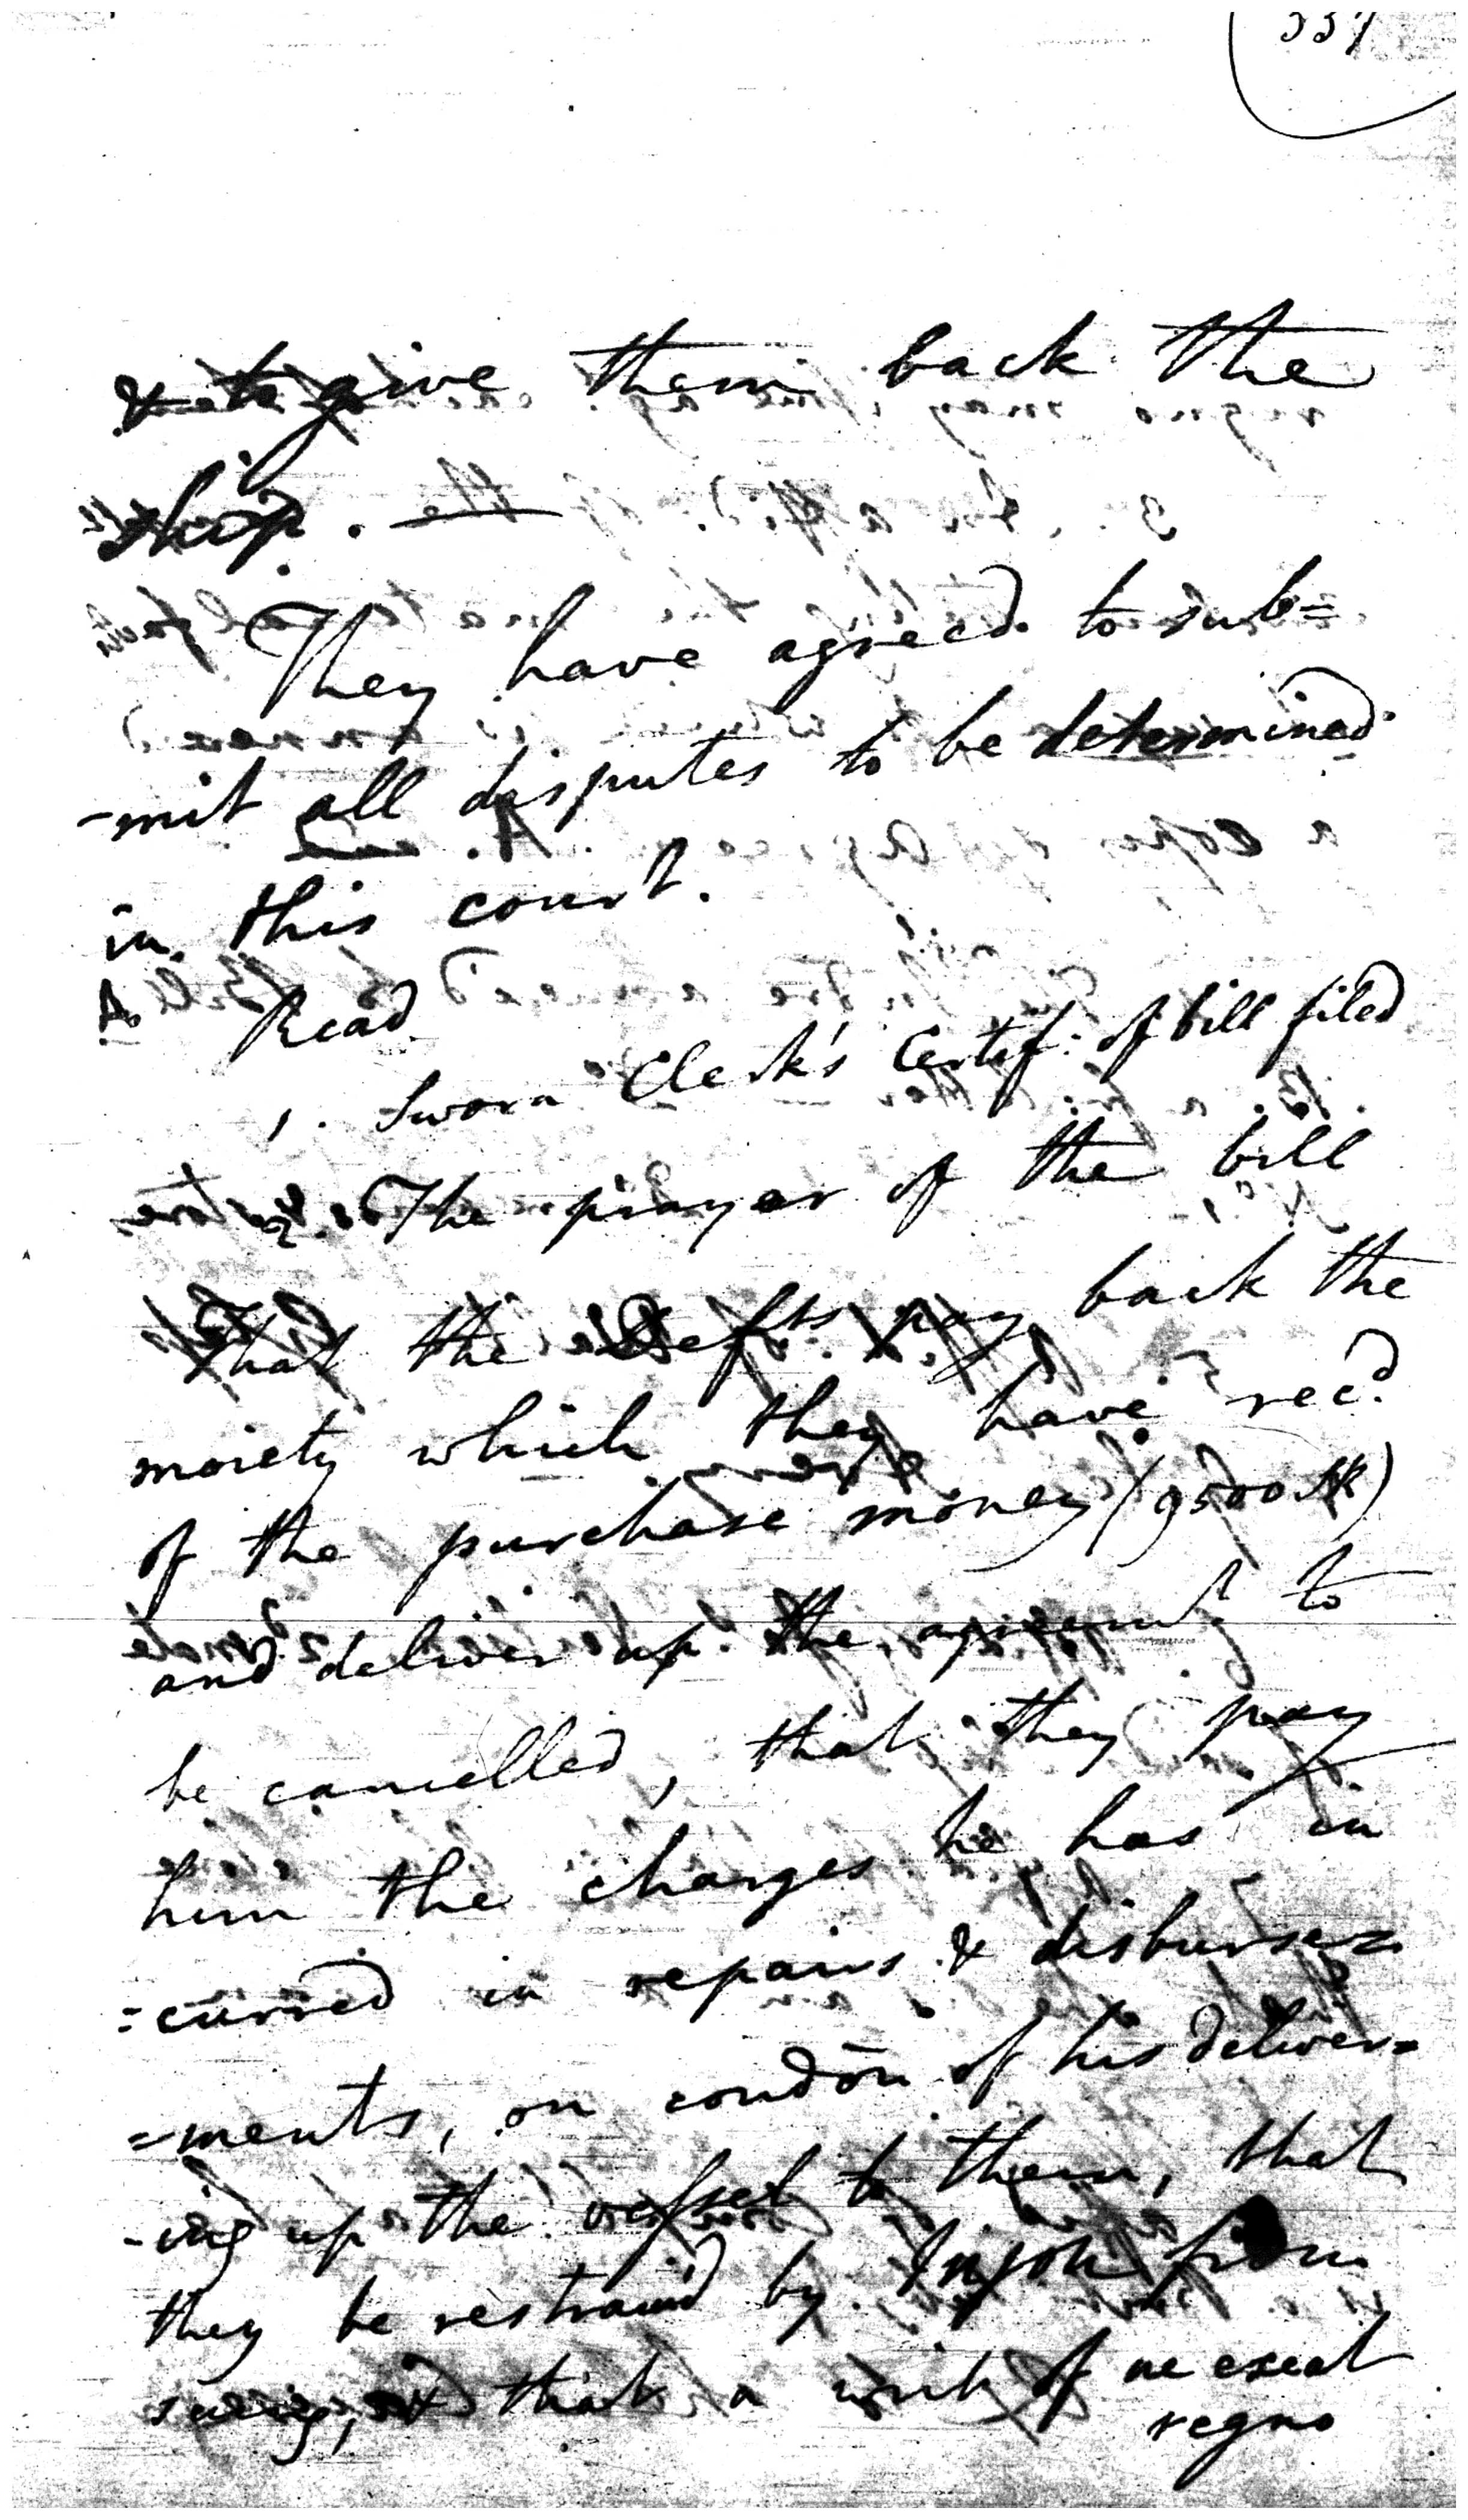 & to give them back the
ship.
They have agreed to sub=
-mit all disputes to be determined
in this court.
Read
1. Sworn Clerk's Certif: of bill filed
2. The prayer of the bill
That the Defts pay back the
moiety which they have rec.d
of the purchase money (9500
and deliver up the agreemt to
be cancelled, that they pay
him the charges he has in
=curred in repairs & disburse=
=ments, on condōn of his deliver=
-ing up the vessel to them, that
they be restrain'd by Injon from
sueing, & that a writ of ne exeat
regno